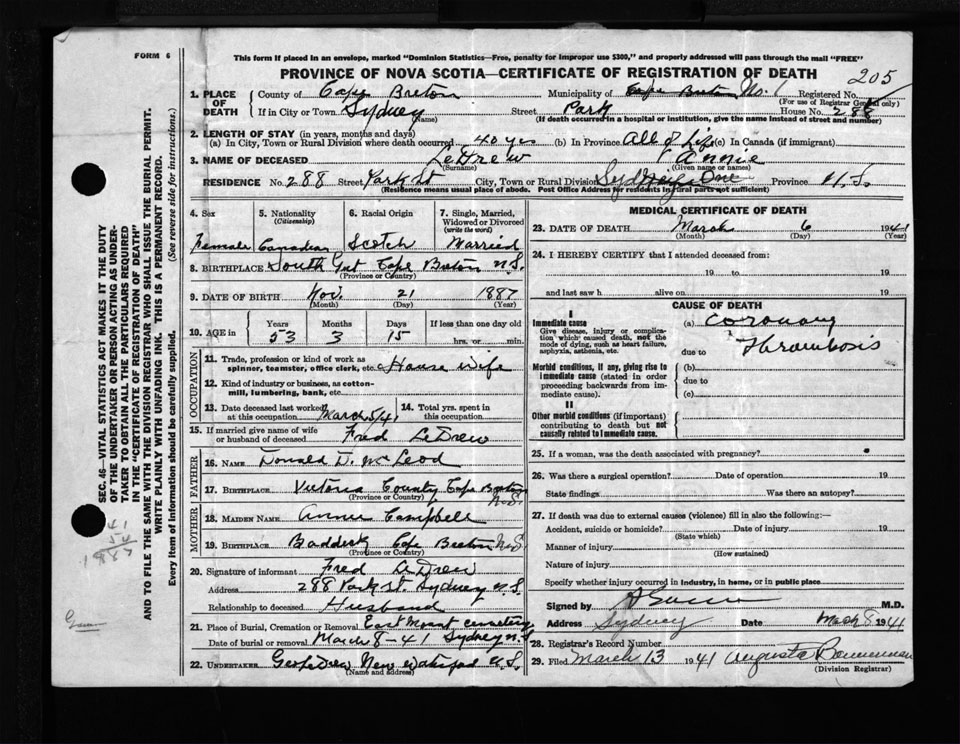 FORM 6
This form if placed in an envelope, marked "Dominion Statistics—Free, penalty for improper use $300," and properly addressed will pass through the mail "FREE"
PROVINCE OF NOVA SCOTIA—CERTIFICATE OF REGISTRATION OF DEATH
205
1. PLACE OF DEATH County of Cape Breton Municipality of Cape Breton No. 1 Registered No.
(For use of Registrar General only)
If in City or Town Sydney Street Park House No. 288
(Name) (If death occurred in a hospital or institution, give the name instead of street and number)
2. LENGTH OF STAY (in years, months and days)
(a) In City, Town or Rural Division where death occurred 40 yrs (b) In Province All of Life (c) In Canada (if immigrant)
3. NAME OF DECEASED LeDrew Annie
(Surname) (Given name or names)
RESIDENCE No. 288 Street Park St City, Town or Rural Division Sydney Province N.S.
(Residence means usual place of abode. Post Office Address for residents in rural parts not sufficient)
4. Sex Female
5. Nationality (Citizenship) Canadian
6. Racial Origin Scotch
7. Single, Married, Widowed or Divorced (write the word) Married
8. BIRTHPLACE South Gut Cape Breton N.S.
(Province or Country)
9. DATE OF BIRTH Nov. 21 1887
(Month) (Day) (Year)
10. AGE in Years Months Days If less than one day old
53 3 15 hrs. or min.
OCCUPATION
11. Trade, profession or kind of work as spinner, teamster, office clerk, etc. House wife
12. Kind of industry or business, as cotton-mill, lumbering, bank, etc.
13. Date deceased last worked at this occupation March 5/41
14. Total yrs. spent in this occupation.
15. If married give name of wife or husband of deceased Fred LeDrew
FATHER
16. NAME Donald D. McLeod
17. BIRTHPLACE Victoria County Cape Breton N.S.
(Province or Country)
MOTHER
18. MAIDEN NAME Annie Campbell
19. BIRTHPLACE Baddeck Cape Breton N.S.
(Province or Country)
20. Signature of informant Fred LeDrew
Address 288 Park St. Sydney N.S.
Relationship to deceased Husband
21. Place of Burial, Cremation or Removal East Mount Cemetery
Date of burial or removal March 8-41 Sydney N.S.
22. UNDERTAKER New Waterford N.S.
(Name and address)
MEDICAL CERTIFICATE OF DEATH
23. DATE OF DEATH March 6 1941
(Month) (Day) (Year)
24. I HEREBY CERTIFY that I attended deceased from:
19 to 19
and last saw h alive on 19
CAUSE OF DEATH
I
Immediate cause
Give disease, injury or complication which caused death, not the mode of dying, such as heart failure, asphyxia, asthenia, etc.
(a) Coronary
due to Thrombosis
Morbid conditions, if any, giving rise to immediate cause (stated in order proceeding backwards from immediate cause).
(b)
due to
(c)
II
Other morbid conditions (if important) contributing to death but not causally related to immediate cause.
25. If a woman, was the death associated with pregnancy?
26. Was there a surgical operation? Date of operation 19
State findings Was there an autopsy?
27. If death was due to external causes (violence) fill in also the following:—
Accident, suicide or homicide? Date of injury 19
(State which)
Manner of injury
(How sustained)
Nature of injury
Specify whether injury occurred in industry, in home, or in public place
Signed by M.D.
Address Sydney Date March 8 1941
28. Registrar's Record Number
29. Filed March 13 1941 Augusta Bannerman
(Division Registrar)
SEC. 46—VITAL STATISTICS ACT MAKES IT THE DUTY
OF THE UNDERTAKER OR PERSON ACTING AS UNDER-
TAKER TO OBTAIN ALL THE PARTICULARS REQUIRED
IN THE "CERTIFICATE OF REGISTRATION OF DEATH"
AND TO FILE THE SAME WITH THE DIVISION REGISTRAR WHO SHALL ISSUE THE BURIAL PERMIT.
WRITE PLAINLY WITH UNFADING INK. THIS IS A PERMANENT RECORD.
Every item of information should be carefully supplied. (See reverse side for instructions.)
41
54
1887